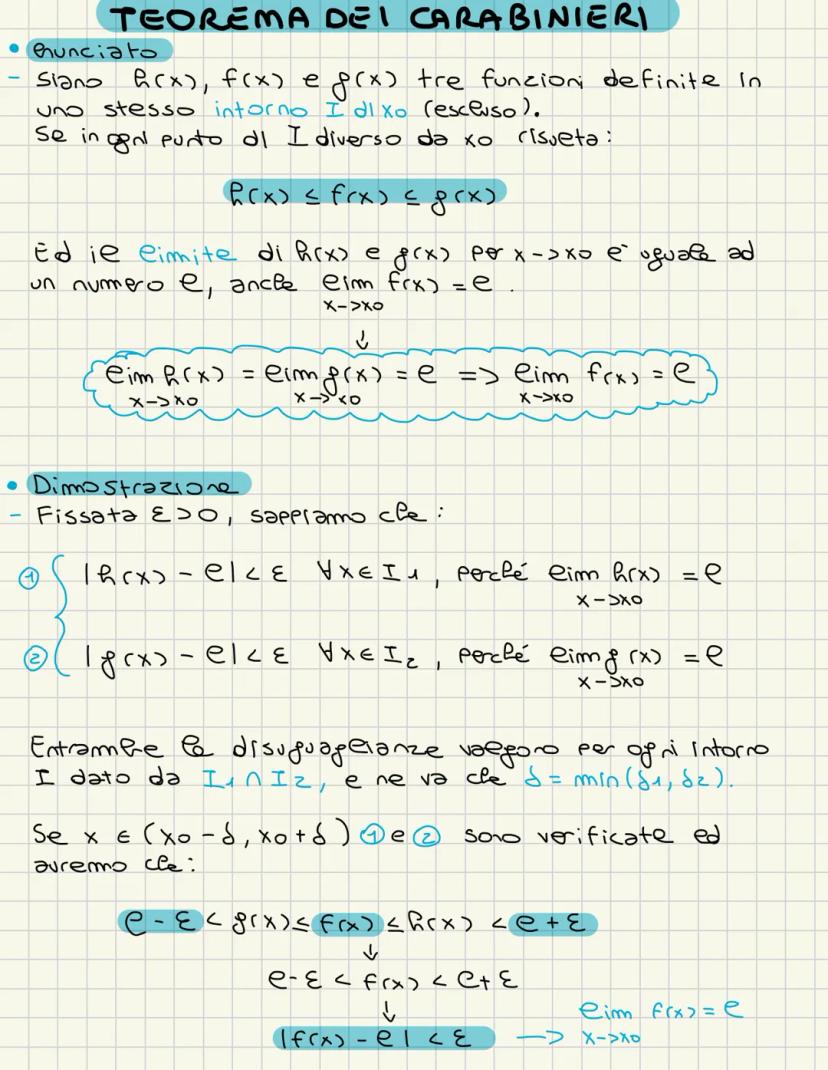 TEOREMA DEI CARABINIERI
• Enunciato
- Siano h(x), f(x) e g(x) tre funzioni definite in
uno stesso intorno I di x0 (escluso).
Se in ogni punto di I diverso da x0 risulta:
h(x) ≤ f(x) ≤ g(x)
Ed il limite di h(x) e g(x) per x->x0 è uguale ad
un numero l, anche lim f(x) = l.
x->x0
↓
lim h(x) = lim g(x) = l => lim f(x) = l
x->x0 x->x0 x->x0
• Dimostrazione
- Fissata ε>0, sappiamo che:
① |h(x) - l| < ε ∀x∈I1, perché lim h(x) = l
x->x0
② |g(x) - l| < ε ∀x∈I2, perché lim g(x) = l
x->x0
Entrambe le disuguaglianze valgono per ogni intorno
I dato da I1∩I2, e ne va che δ = min(δ1, δ2).
Se x ∈ (x0-δ, x0+δ) ① e ② sono verificate ed
avremo che:
l-ε < g(x) ≤ f(x) ≤ h(x) < l+ε
↓
l-ε < f(x) < l+ε
↓
|f(x) - l| < ε —> lim f(x) = l
x->x0